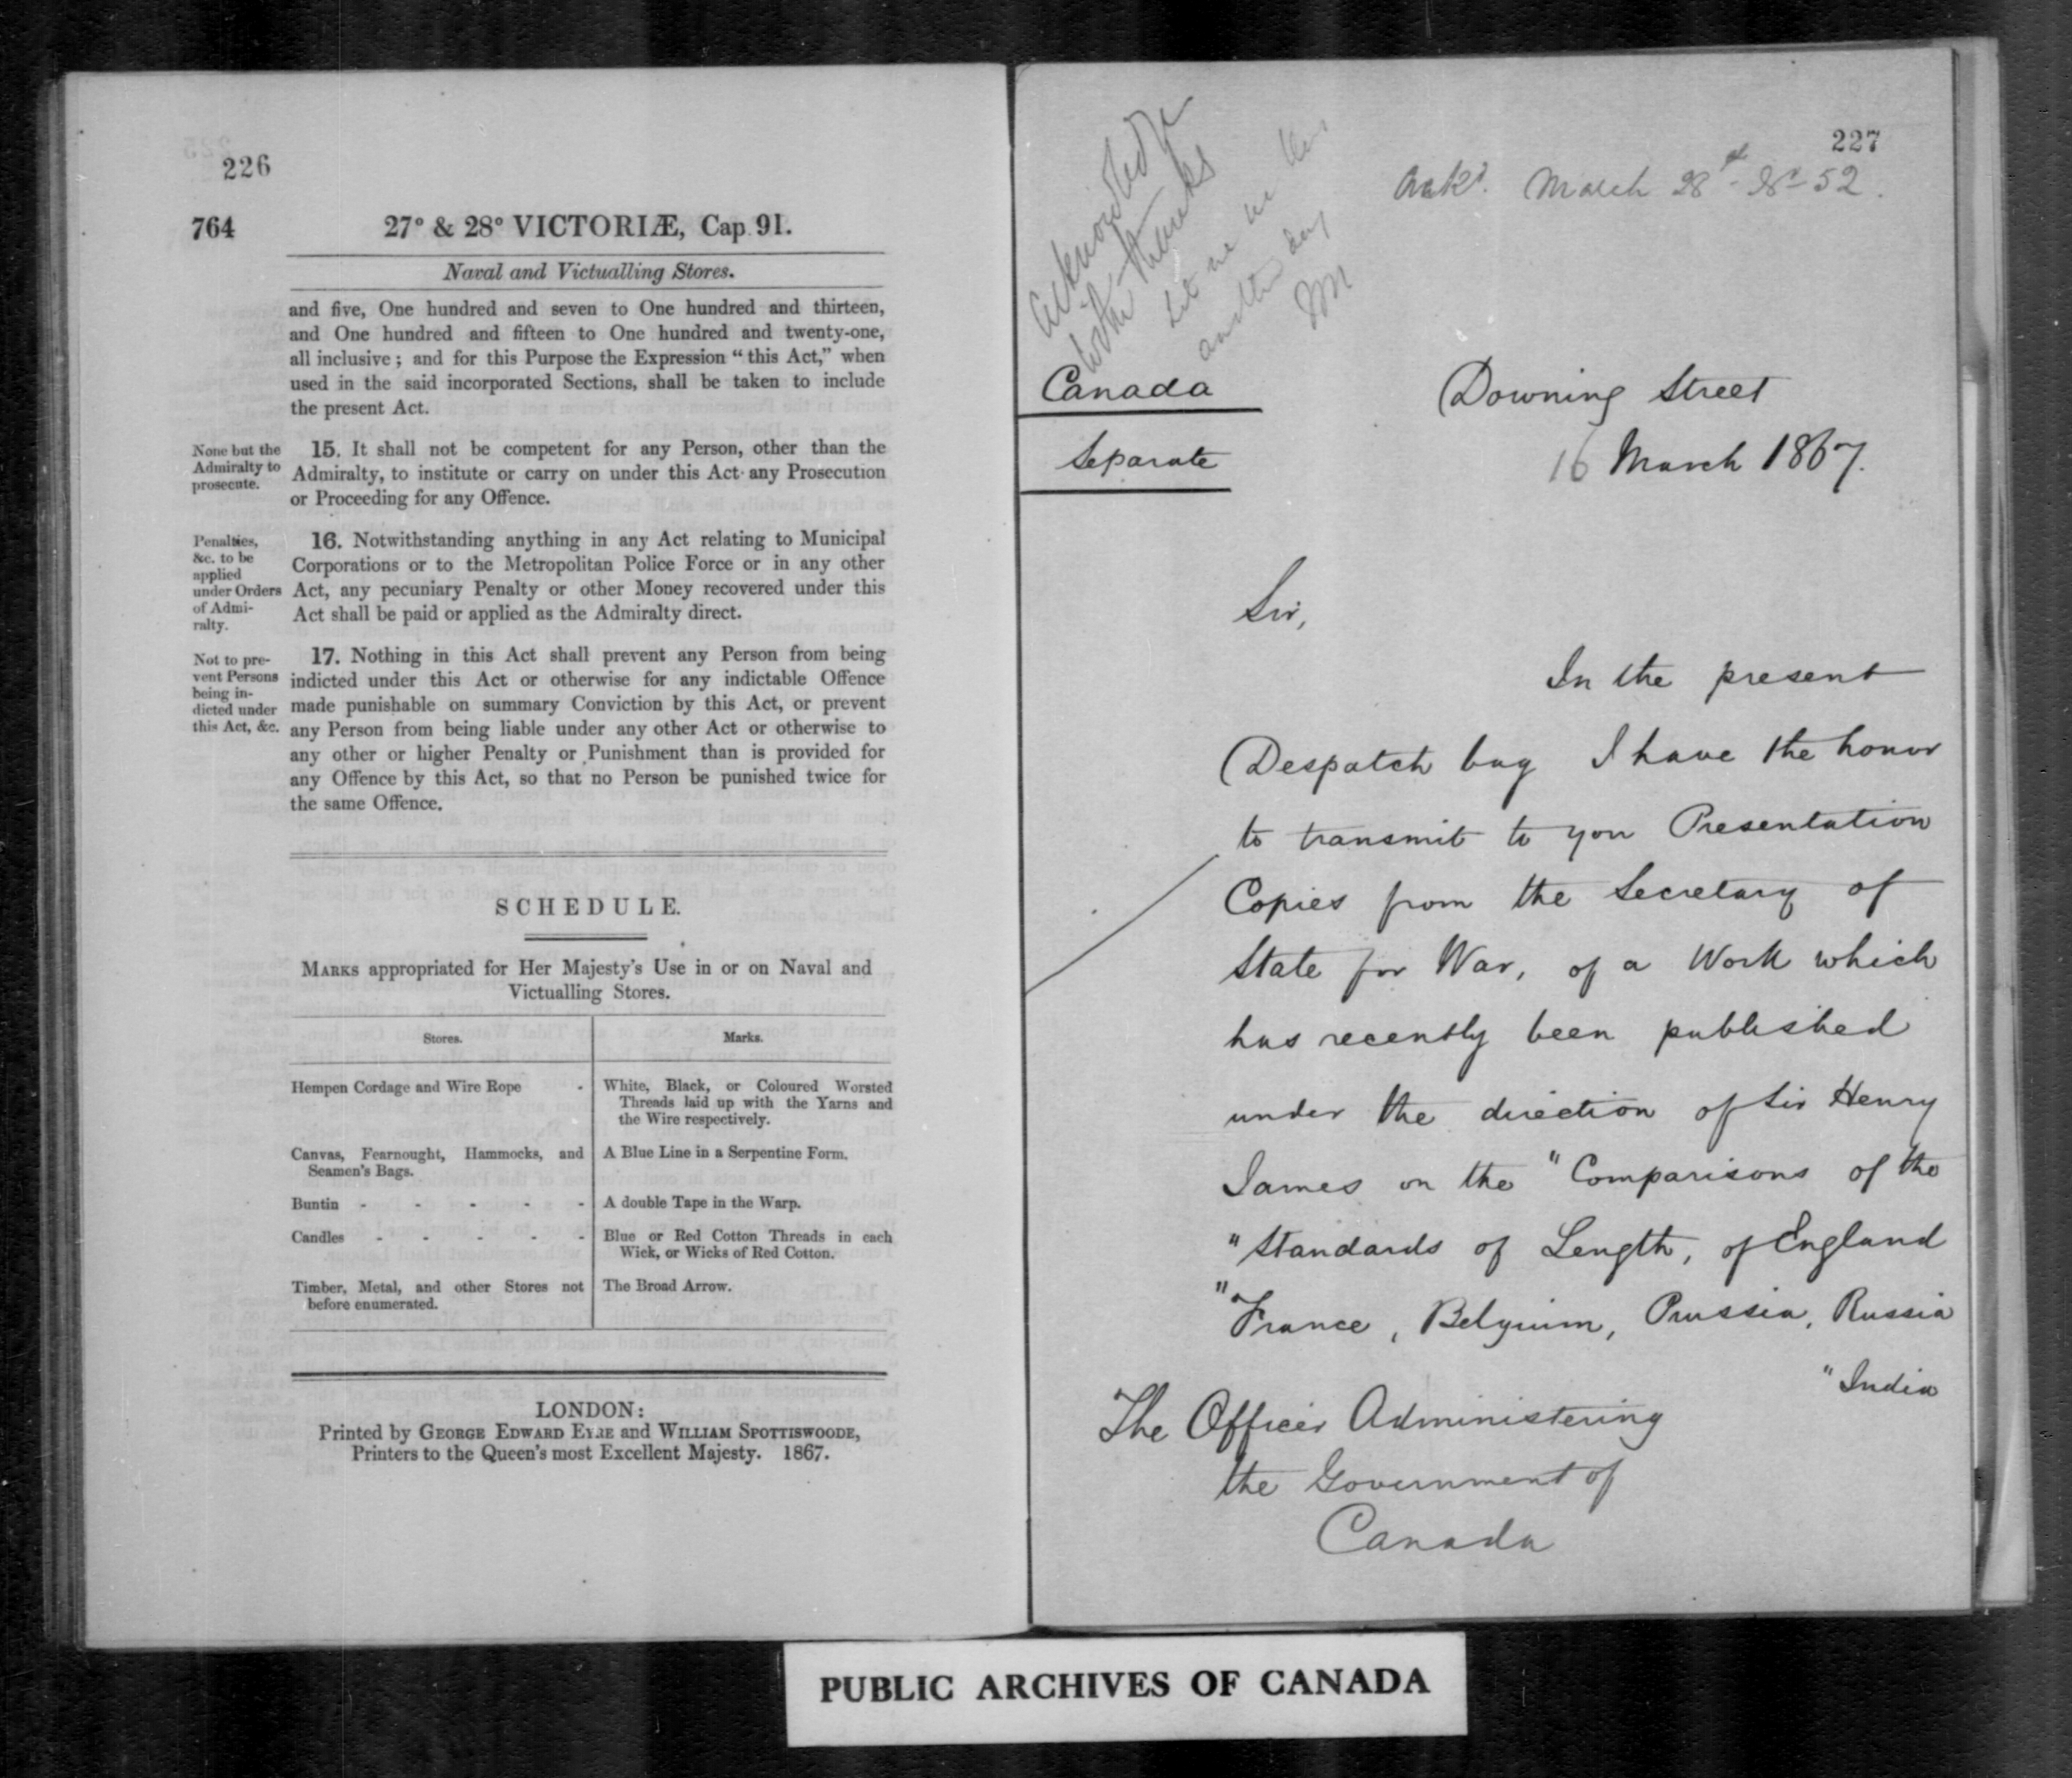 226
764 27° & 28° VICTORIÆ, Cap. 91.
Naval and Victualling Stores.
and five, One hundred and seven to One hundred and thirteen,
and One hundred and fifteen to One hundred and twenty-one,
all inclusive; and for this Purpose the Expression "this Act," when
used in the said incorporated Sections, shall be taken to include
the present Act.
None but the
Admiralty to
prosecute.
15. It shall not be competent for any Person, other than the
Admiralty, to institute or carry on under this Act any Prosecution
or Proceeding for any Offence.
Penalties,
&c. to be
applied
under Orders
of Admi-
ralty.
16. Notwithstanding anything in any Act relating to Municipal
Corporations or to the Metropolitan Police Force or in any other
Act, any pecuniary Penalty or other Money recovered under this
Act shall be paid or applied as the Admiralty direct.
Not to pre-
vent Persons
being in-
dicted under
this Act, &c.
17. Nothing in this Act shall prevent any Person from being
indicted under this Act or otherwise for any indictable Offence
made punishable on summary Conviction by this Act, or prevent
any Person from being liable under any other Act or otherwise to
any other or higher Penalty or Punishment than is provided for
any Offence by this Act, so that no Person be punished twice for
the same Offence.
SCHEDULE.
MARKS appropriated for Her Majesty's Use in or on Naval and
Victualling Stores.
Stores. Marks.
Hempen Cordage and Wire Rope - White, Black, or Coloured Worsted
Threads laid up with the Yarns and
the Wire respectively.
Canvas, Fearnought, Hammocks, and A Blue Line in a Serpentine Form.
Seamen's Bags.
Buntin - - - - - A double Tape in the Warp.
Candles - - - - - Blue or Red Cotton Threads in each
Wick, or Wicks of Red Cotton.
Timber, Metal, and other Stores not The Broad Arrow.
before enumerated.
LONDON:
Printed by GEORGE EDWARD EYRE and WILLIAM SPOTTISWOODE,
Printers to the Queen's most Excellent Majesty. 1867.
227
Ackd. March 28th No 52.
Acknowledge
with thanks
Let me
another day
Canada
Separate
Downing Street
16 March 1867.
Sir,
In the present
Despatch bag I have the honor
to transmit to you Presentation
Copies from the Secretary of
State for War, of a Work which
has recently been published
under the direction of Sir Henry
James on the "Comparisons of the
"Standards of Length, of England
"France, Belgium, Prussia, Russia
"India
The Officer Administering
the Government of
Canada
PUBLIC ARCHIVES OF CANADA